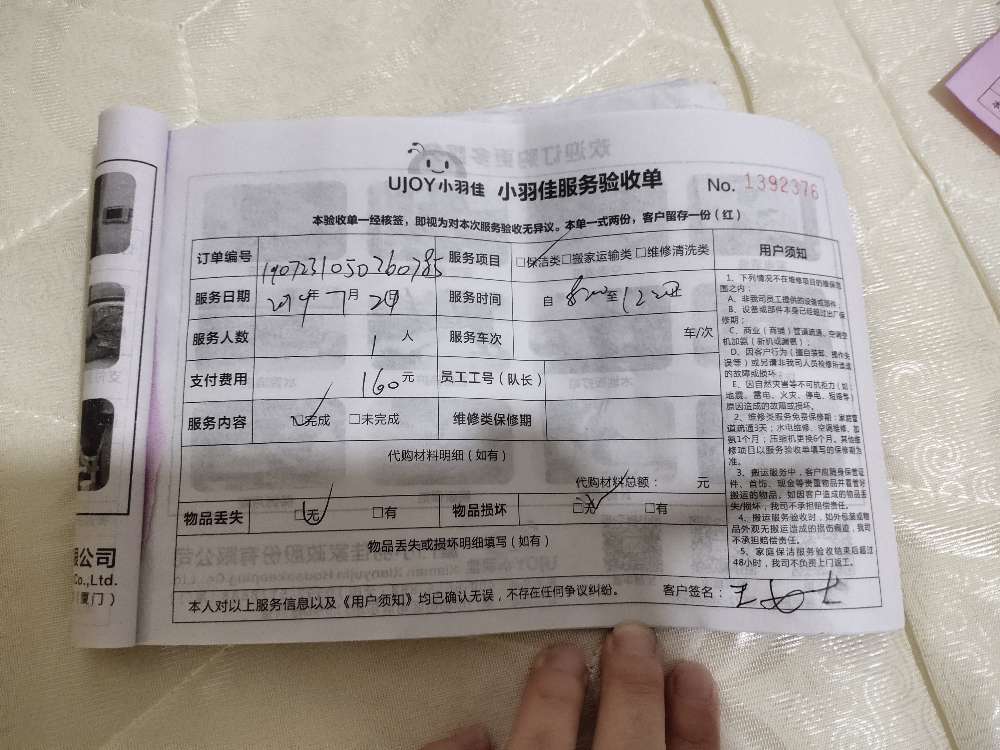 UJOY小羽佳 小羽佳服务验收单 No. 1392376
本验收单一经核签，即视为对本次服务验收无异议。本单一式两份，客户留存一份（红）
订单编号 1907231050260785 服务项目 □保洁类□搬家运输类 □维修清洗类
服务日期 年7月 日 服务时间 自 8:00 至 12:00
服务人数 1 人 服务车次 车/次
支付费用 160元 员工工号（队长）
服务内容 □完成 □未完成 维修类保修期
代购材料明细（如有）
代购材料总额： 元
物品丢失 □无 □有 物品损坏 □无 □有
物品丢失或损坏明细填写（如有）
本人对以上服务信息以及《用户须知》均已确认无误，不存在任何争议纠纷。 客户签名：
用户须知
1、下列情况不在维修项目的维保范
围之内：
A、非我司员工提供的设备或部件
B、设备或部件本身已经超过出厂保
修期；
C、商业（商铺）管道疏通、空调空
机加氨（新机或漏氨）；
D、因客户行为（擅自装卸、操作失
误等）或另请非我司人员检修所造成
的故障或损坏；
E、因自然灾害等不可抗拒力（如：
地震、雷电、火灾、停电、短路等）
原因造成的故障或损坏。
2、维修类服务免费保修期：家庭管
道疏通3天；水电维修、空调维修、加
氨1个月；压缩机更换6个月。其他维
修项目以服务验收单填写的保修期为
准。
3、搬运服务中，客户应随身保管证
件、首饰、现金等贵重物品并看管好
搬运的物品。如因客户造成的物品丢
失/损坏，我司不承担赔偿责任。
4、搬运服务验收时，如外包装或物
品外观无搬运造成的损伤痕迹，我司
不承担赔偿责任。
5、家庭保洁服务验收结束后超过
48小时，我司不负责上门返工。
限公司
Co.,Ltd.
厦门）